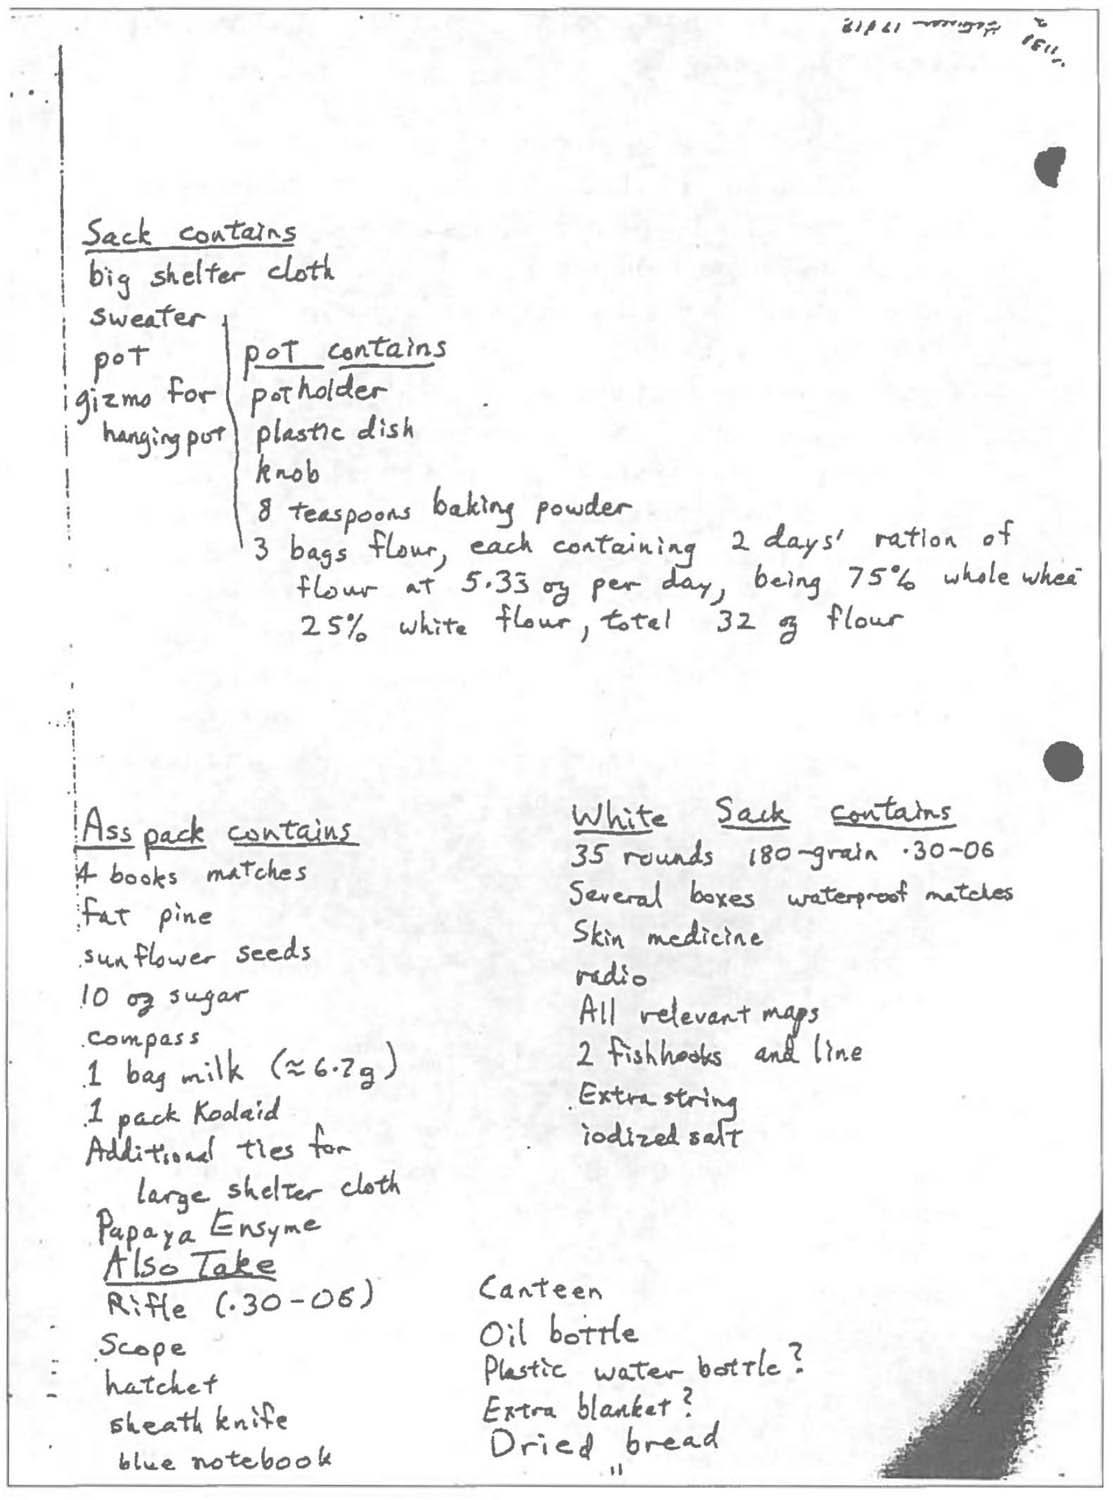 Sack contains
big shelter cloth
sweater
pot
gizmo for
hanging pot
pot contains
potholder
plastic dish
knob
8 teaspoons baking powder
3 bags flour, each containing 2 days' ration of
flour at 5.33 oz per day, being 75% whole whea
25% white flour, total 32 oz flour
Ass pack contains
4 books matches
fat pine
sunflower seeds
10 oz sugar
compass
1 bag milk (≈6.7g)
1 pack Koolaid
Additional ties for
large shelter cloth
Papaya Ensyme
White Sack contains
35 rounds 180-grain .30-06
Several boxes waterproof matches
Skin medicine
radio
All relevant maps
2 fishhooks and line
Extra string
iodized salt
Also Take
Rifle (.30-06)
Scope
hatchet
sheath knife
blue notebook
Canteen
Oil bottle
Plastic water bottle?
Extra blanket?
Dried bread